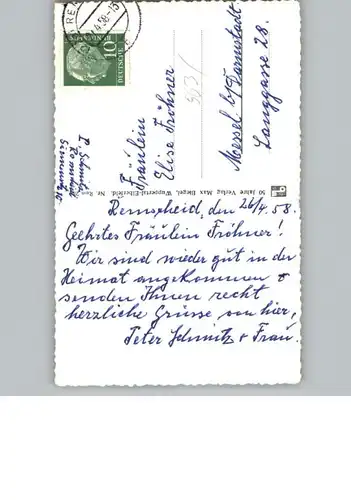 Remscheid, den 26/4.58.
Geehrtes Fräulein Fröhner!
Wir sind wieder gut in der
Heimat angekommen u
senden Ihnen recht
herzliche Grüsse von hier,
Peter Schmitz u Frau.
Fräulein
Elise Fröhner
Messel b/Darmstadt
Langgasse 28.
P. Schmitz
50 Jahre Verlag Max Biegel, Wuppertal-Elberfeld, Nr. Rem
10
DEUTSCHE